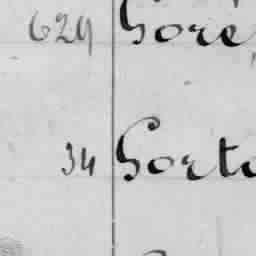 629 Gore
34 Gorto